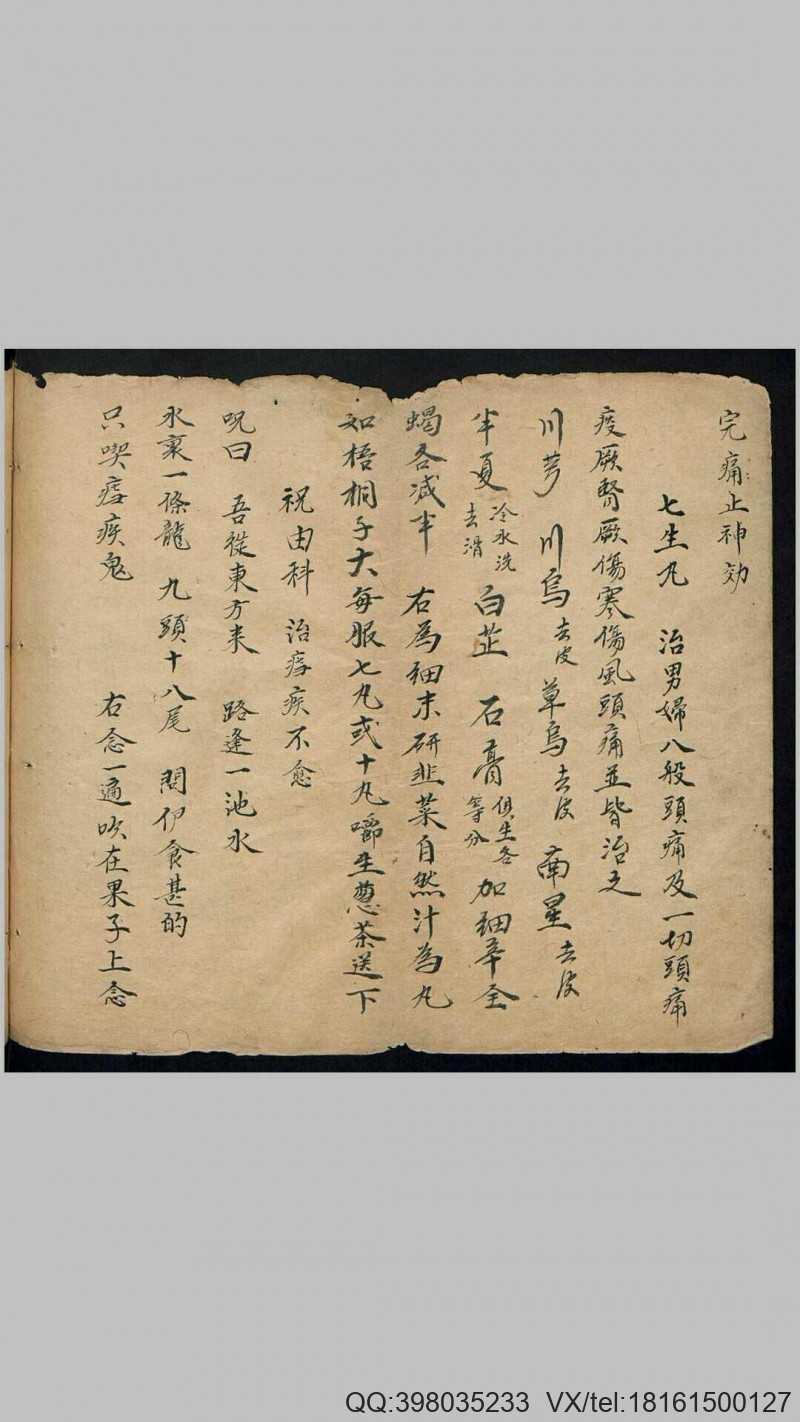 完痛止神効
七生丸 治男婦八般頭痛及一切頭痛
痰厥腎厥傷寒傷風頭痛並皆治之
川芎 川烏去皮 草烏去皮 南星去皮
半夏冷水洗去滑 白芷 石膏俱生各等分 加細辛全
蝎各减半 右為細末研韭菜自然汁為丸
如梧桐子大每服七丸或十丸嚼生蔥茶送下
祝由科 治瘧疾不愈
呪曰 吾從東方来 路逢一池水
水裏一條龍 九頭十八尾 問伊食甚的
只喫瘧疾鬼 右念一遍吹在果子上念
QQ:398035233 VX/tel:18161500127